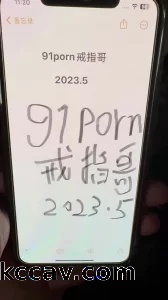 11:20
备忘录
91porn戒指哥
2023.5
91porn
戒指哥
2023.5
kccav.com